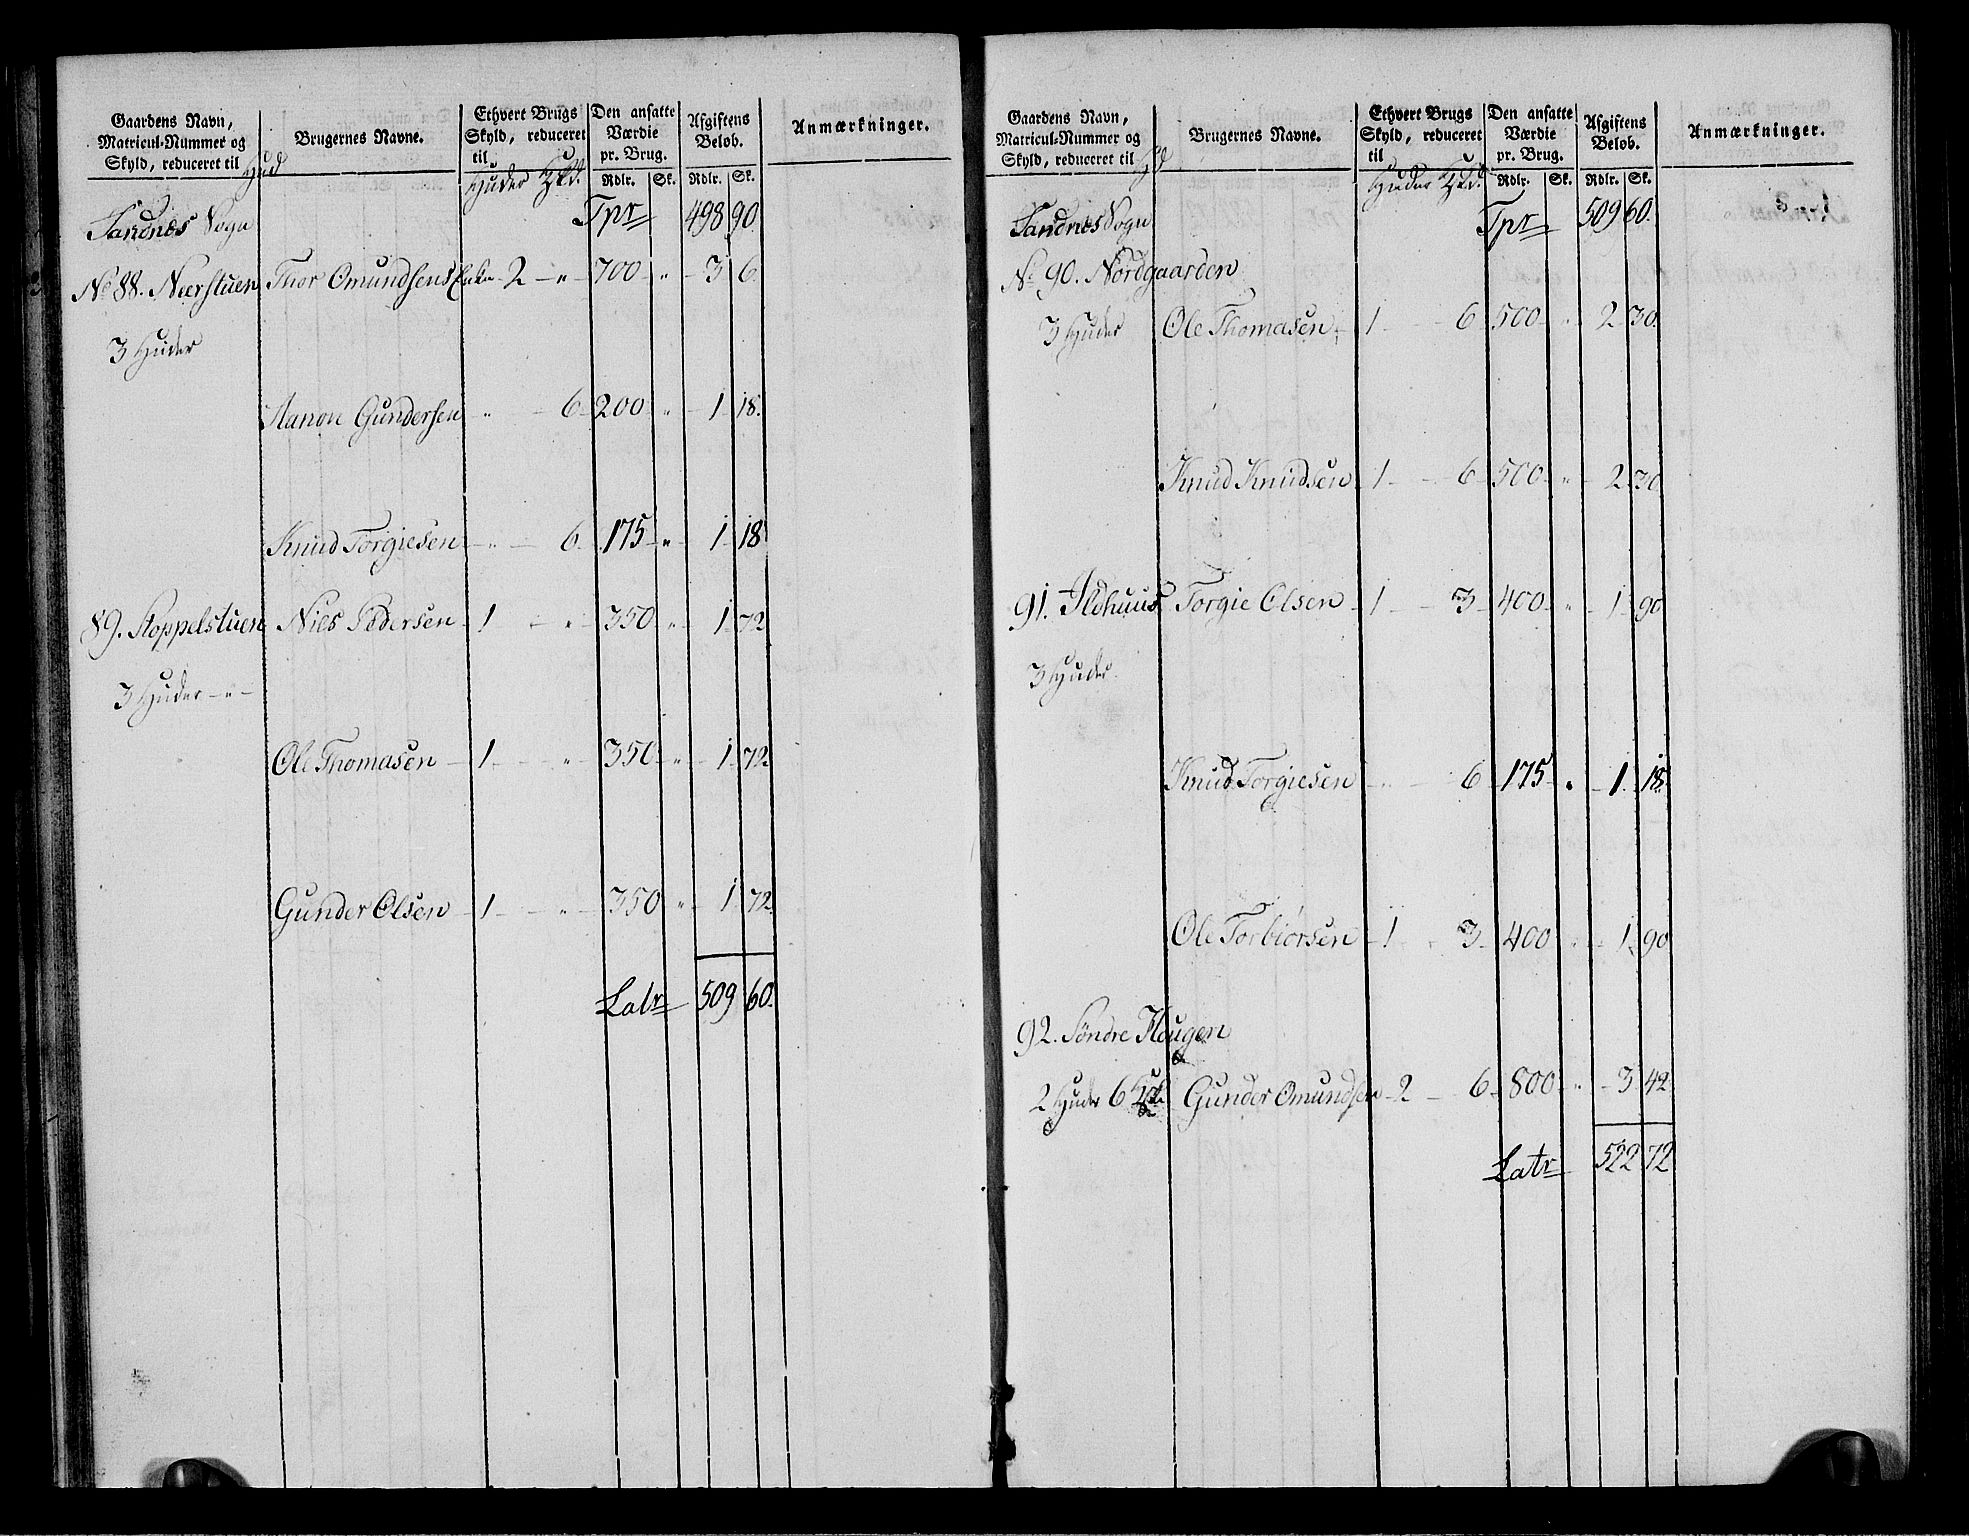 Gaardens Navn, Matricul-Nummer og Skyld, reduceret til Hud
Brugernes Navne.
Ethvert Brugs Skyld, reduceret til Huder
Den ansatte Værdie pr. Brug. Rdlr. Sk.
Afgiftens Beløb. Rdlr. Sk.
Anmærkninger.
Sandnes Sogn Tpr 498 90.
No 88. Nierstuen Thor Omundsens Enke 2 - " - 700 - " - 3 6.
3 Huder
Aanon Gundersen - " - 6 - 200 - " - 1 18.
Knud Torgiesen - " - 6 175 - " - 1 18
89. Stoppelstuen Niels Pedersen - 1 - " - 350 - " - 1 72
3 Huder - " -
Ole Thomasen - 1 - " - 350 - " - 1 72
Gunder Olsen - 1 - " - 350 " - 1 72.
Latr 509 60.
Gaardens Navn, Matricul-Nummer og Skyld, reduceret til Hd
Brugernes Navne.
Ethvert Brugs Skyld, reduceret til Huder
Den ansatte Værdie pr. Brug. Rdlr. Sk.
Afgiftens Beløb. Rdlr. Sk.
Anmærkninger.
Sandnes Sogn Tpr 509 60.
No 90. Nordgaarden
3 Huder Ole Thomasen - 1 - 6 500 - " 2 30.
Knud Knudsen - 1 - 6 - 500 - " - 2 30
91. Ildhuus Torgie Olsen - 1 - 3 - 400 - " - 1 90
3 Huder
Knud Torgiesen - " - 6 - 175 - " - 1 18
Ole Torbiørsen - 1 - 3 - 400 " - 1 90
92. Søndre Hougen
2 Huder 6 Gunder Omundsen - 2 - 6 - 800 - " - 3 42
Latr 522 72